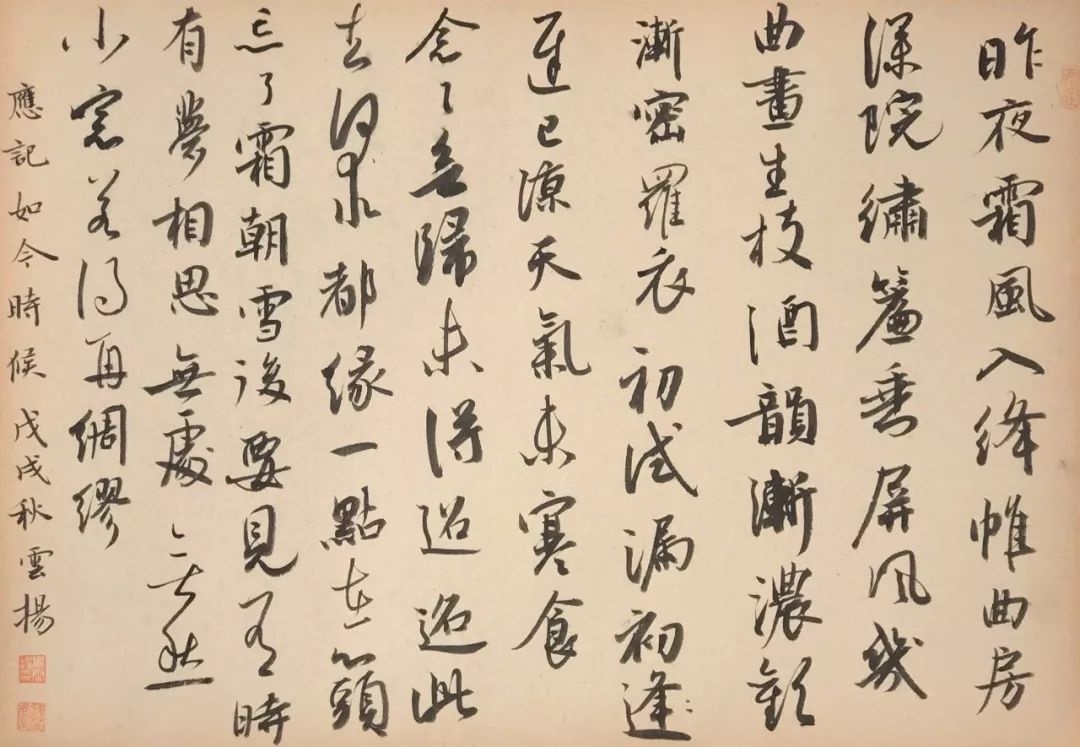 昨夜霜風入絳帷曲房
深院繡簾垂屏風幾
曲畫生枝酒韻漸濃歡
漸密羅衣初試漏初逢
遲已涼天氣未寒食
念〻無歸未得迢迢此
去何求都緣一點在心頭
忘了霜朝雪後要見有時
有夢相思無處無愁
小窗若得再綢繆
應記如今時候戊戌秋雲揚